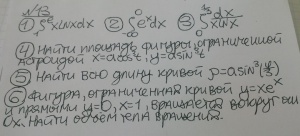 ① ∫ x ln x dx ② ∫ eˣ dx ③ ∫ dx / x ln x
④ Найти площадь фигуры, ограниченной
астроидой x=acos³t; y=asin³t
⑤ Найти всю длину кривой ρ=asin³(φ/3)
⑥ Фигура, ограниченная кривой y=xeˣ
и прямыми y=0, x=1, вращается вокруг оси
Ox. Найти объем тела вращения.